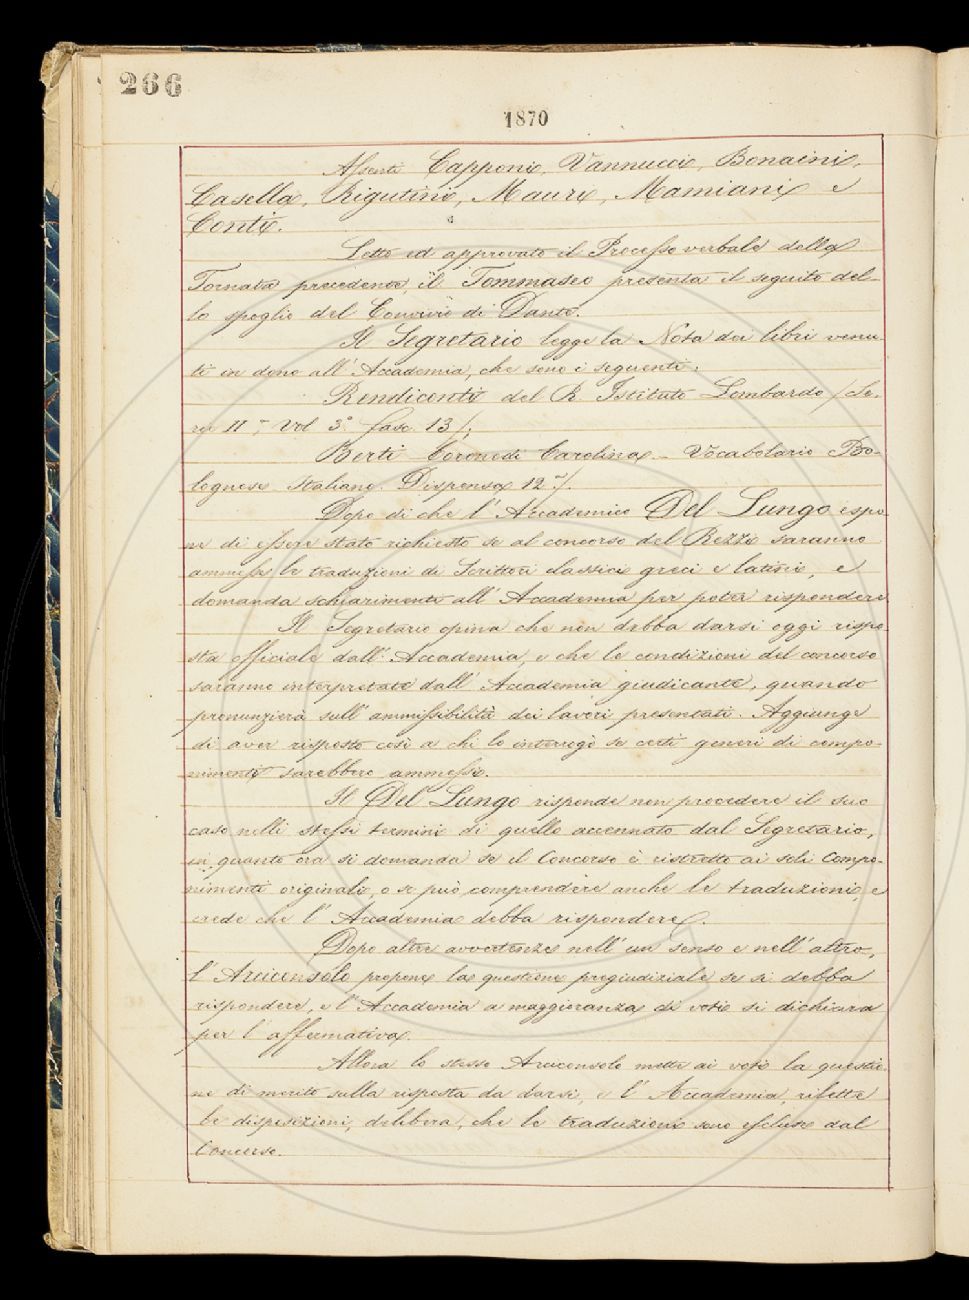 266
1870
Assenti Capponi, Vannucci, Bonaini,
Casella, Rigutini, Mauri, Mamiani e
Conti.
Letto ed approvato il Processo verbale della
Tornata precedente, il Tommaseo presenta il seguito del-
lo spoglio del Convivio di Dante.
Il Segretario legge la Nota dei libri venu-
ti in dono all'Accademia, che sono i seguenti:
Rendiconti del R. Istituto Lombardo (Se-
rie II.ª, Vol 3.º fasc. 13);
Berti Coronedi Carolina - Vocabolario Bo-
lognese Italiano. Dispensa 12.ª).
Dopo di che l'Accademico Del Lungo espo-
ne di essere stato richiesto se al concorso del Rezzi saranno
ammesse le traduzioni di Scrittori classici greci e latini, e
domanda schiarimenti all'Accademia per poter rispondere.
Il Segretario opina che non debba darsi oggi rispo-
sta officiale dall'Accademia, e che le condizioni del concorso
saranno interpretate dall'Accademia giudicante, quando
pronunzierà sull'ammissibilità dei lavori presentati. Aggiunge
di aver risposto così a chi lo interrogò se certi generi di compo-
nimenti sarebbero ammessi.
Il Del Lungo risponde non procedere il suo
caso nelli stessi termini di quello accennato dal Segretario,
in quanto ora si domanda se il Concorso è ristretto ai soli Compo-
nimenti originali, o se può comprendere anche le traduzioni, e
crede che l'Accademia debba rispondere.
Dopo altre avvertenze nell'un senso e nell'altro,
l'Arciconsolo propone la questione pregiudiziale se si debba
rispondere, e l'Accademia a maggioranza di voti si dichiara
per l'affermativa.
Allora lo stesso Arciconsolo mette ai voti la questio-
ne di merito sulla risposta da darsi, e l'Accademia, rilette
le disposizioni, delibera, che le traduzioni sono escluse dal
Concorso.